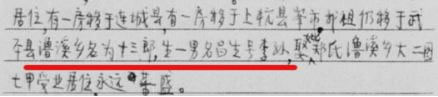 居住,有一房移于连城县,有一房移于上杭县华市,郁祖仍移于武
平县澧溪乡名为十三郎,生一男名吕生号李,娶郑氏澧溪乡大二图
七甲受业居住永远蕃盛。